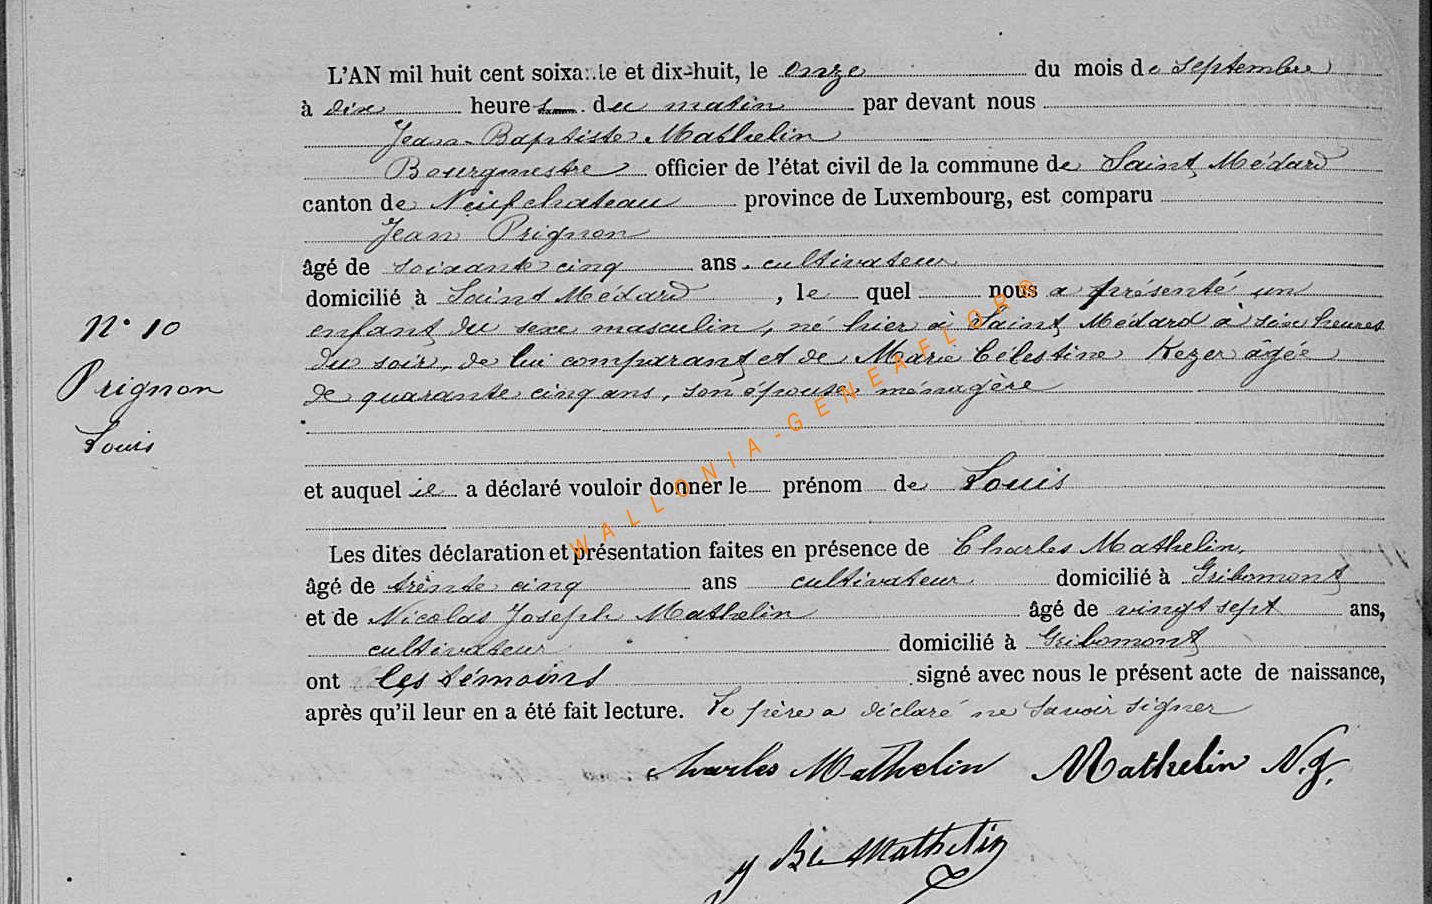 L'AN mil huit cent soixante et dix-huit, le onze du mois de septembre
à dix heures du matin par devant nous
Jean-Baptiste Mathelin
Bourgmestre officier de l'état civil de la commune de Saint Médard
canton de Neufchateau province de Luxembourg, est comparu
Jean Prignon
âgé de soixante cinq ans. cultivateur
domicilié à Saint Médard, le quel nous a présenté un
enfant du sexe masculin, né hier à Saint Médard à six heures
du soir, de lui comparant et de Marie Célestine Kezer âgée
de quarante cinq ans, son épouse ménagère
N° 10
Prignon
Louis
et auquel il a déclaré vouloir donner le prénom de Louis
Les dites déclaration et présentation faites en présence de Charles Mathelin,
âgé de trente cinq ans cultivateur domicilié à Gribomont
et de Nicolas Joseph Mathelin âgé de vingt sept ans,
cultivateur domicilié à Gribomont
ont les témoins signé avec nous le présent acte de naissance,
après qu'il leur en a été fait lecture. Le père a déclaré ne savoir signer
Charles Mathelin Mathelin N.J.
J Bte Mathelin
WALLONIA-GENEAFLORE